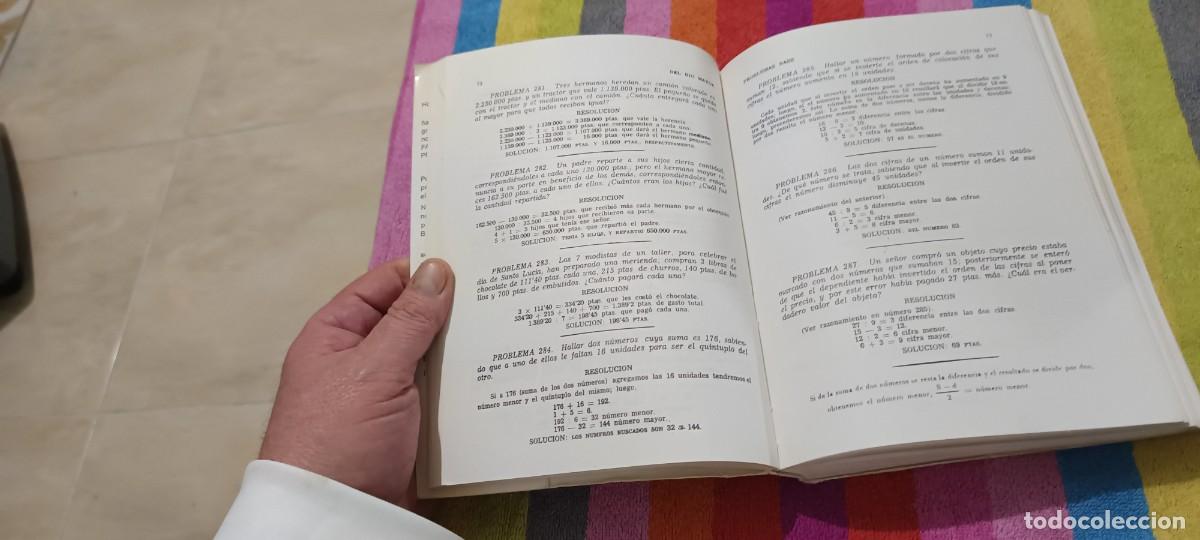 72
DEL RIO MARTIN
PROBLEMA 281. Tres hermanos heredan un camión valorado en
2.230.000 ptas. y un tractor que vale 1.139.000 ptas. El pequeño se queda
con el tractor y el mediano con el camión. ¿Cuánto entregará cada uno
al mayor para que todos reciban igual?
RESOLUCION
2.230.000 + 1.139.000 = 3.369.000 ptas. que vale la herencia.
3.369.000 : 3 = 1.123.000 ptas. que corresponden a cada uno.
2.230.000 — 1.123.000 = 1.107.000 ptas. que dará el hermano mediano.
1.139.000 — 1.123.000 = 16.000 ptas. que dará el hermano pequeño.
SOLUCION: 1.107.000 PTAS. Y 16.000 PTAS., RESPECTIVAMENTE.
PROBLEMA 282. Un padre reparte a sus hijos cierta cantidad,
correspondiéndoles a cada uno 130.000 ptas.; pero el hermano mayor re-
nuncia a su parte en beneficio de los demás, correspondiéndoles enton-
ces 162.500 ptas. a cada uno de ellos. ¿Cuántos eran los hijos? ¿Cuál fue
la cantidad repartida?
RESOLUCION
162.500 — 130.000 = 32.500 ptas. que recibió más cada hermano por el obsequio
130.000 : 32.500 = 4 hijos que recibieron su parte.
4 + 1 = 5 hijos que tenía ese señor.
5 × 130.000 = 650.000 ptas. que repartió el padre.
SOLUCION: TENIA 5 HIJOS, Y REPARTIO 650.000 PTAS.
PROBLEMA 283. Las 7 modistas de un taller, para celebrar el
día de Santa Lucía, han preparado una merienda; compran 3 libras de
chocolate de 111'40 ptas. cada una, 215 ptas. de churros, 140 ptas. de bo-
llos y 700 ptas. de embutidos. ¿Cuánto pagará cada una?
RESOLUCION
3 × 111'40 = 334'20 ptas. que les costó el chocolate.
334'20 + 215 + 140 + 700 = 1.389'2 ptas. de gasto total.
1.389'20 : 7 = 198'45 ptas. que pagó cada una.
SOLUCION: 198'45 PTAS.
PROBLEMA 284. Hallar dos números cuya suma es 176, sabien-
do que a uno de ellos le faltan 16 unidades para ser el quíntuplo del
otro.
RESOLUCION
Si a 176 (suma de los dos números) agregamos las 16 unidades tendremos el
número menor y el quíntuplo del mismo; luego,
176 + 16 = 192.
1 + 5 = 6.
192 : 6 = 32 número menor.
176 — 32 = 144 número mayor.
SOLUCION: LOS NUMEROS BUSCADOS SON 32 Y 144.
PROBLEMAS BASE
PROBLEMA 285. Hallar un número formado por dos cifras que
suman 12, sabiendo que si se invierte el orden de colocación de sus
cifras el número aumenta en 18 unidades.
RESOLUCION
PROBLEMA 286. Las dos cifras de un número suman 11 unida-
des. ¿De qué número se trata, sabiendo que al invertir el orden de sus
cifras el número disminuye 45 unidades?
RESOLUCION
(Ver razonamiento del anterior)
45 : 9 = 5 diferencia entre las dos cifras.
11 — 5 = 6.
6 : 2 = 3 cifra menor.
3 + 5 = 8 cifra mayor.
SOLUCION: DEL NUMERO 83.
PROBLEMA 287. Un señor compró un objeto cuyo precio estaba
marcado con dos números que sumaban 15; posteriormente se enteró
de que el dependiente había invertido el orden de las cifras al poner
el precio, y por este error había pagado 27 ptas. más. ¿Cuál era el ver-
dadero valor del objeto?
RESOLUCION
(Ver razonamiento en número 285).
27 : 9 = 3 diferencia entre las dos cifras.
15 — 3 = 12.
12 : 2 = 6 cifra menor.
6 + 3 = 9 cifra mayor.
SOLUCION: 69 PTAS.
Si de la suma de dos números se resta la diferencia y el resultado se divide por dos,
obtenemos el número menor, S — d / 2 = número menor.
todocoleccion